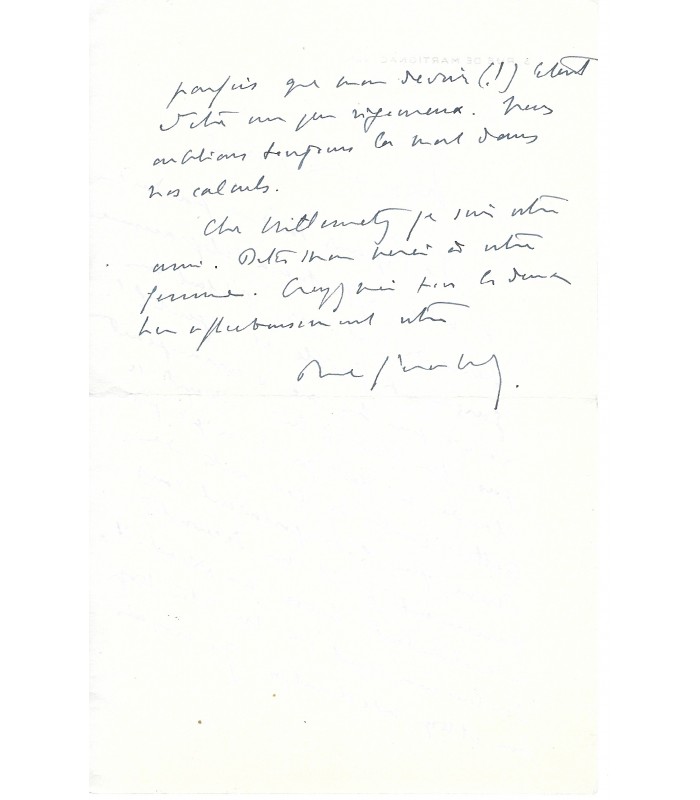 RUE DE MARTIGNAC
parfois que mon devoir (!) était
d'être un peu rigoureux. Nous
oublions toujours la mort dans
nos calculs.
Cher Willemetz je suis votre
ami. Dites mon merci à votre
femme. Croyez moi tous les deux
bien affectueusement votre